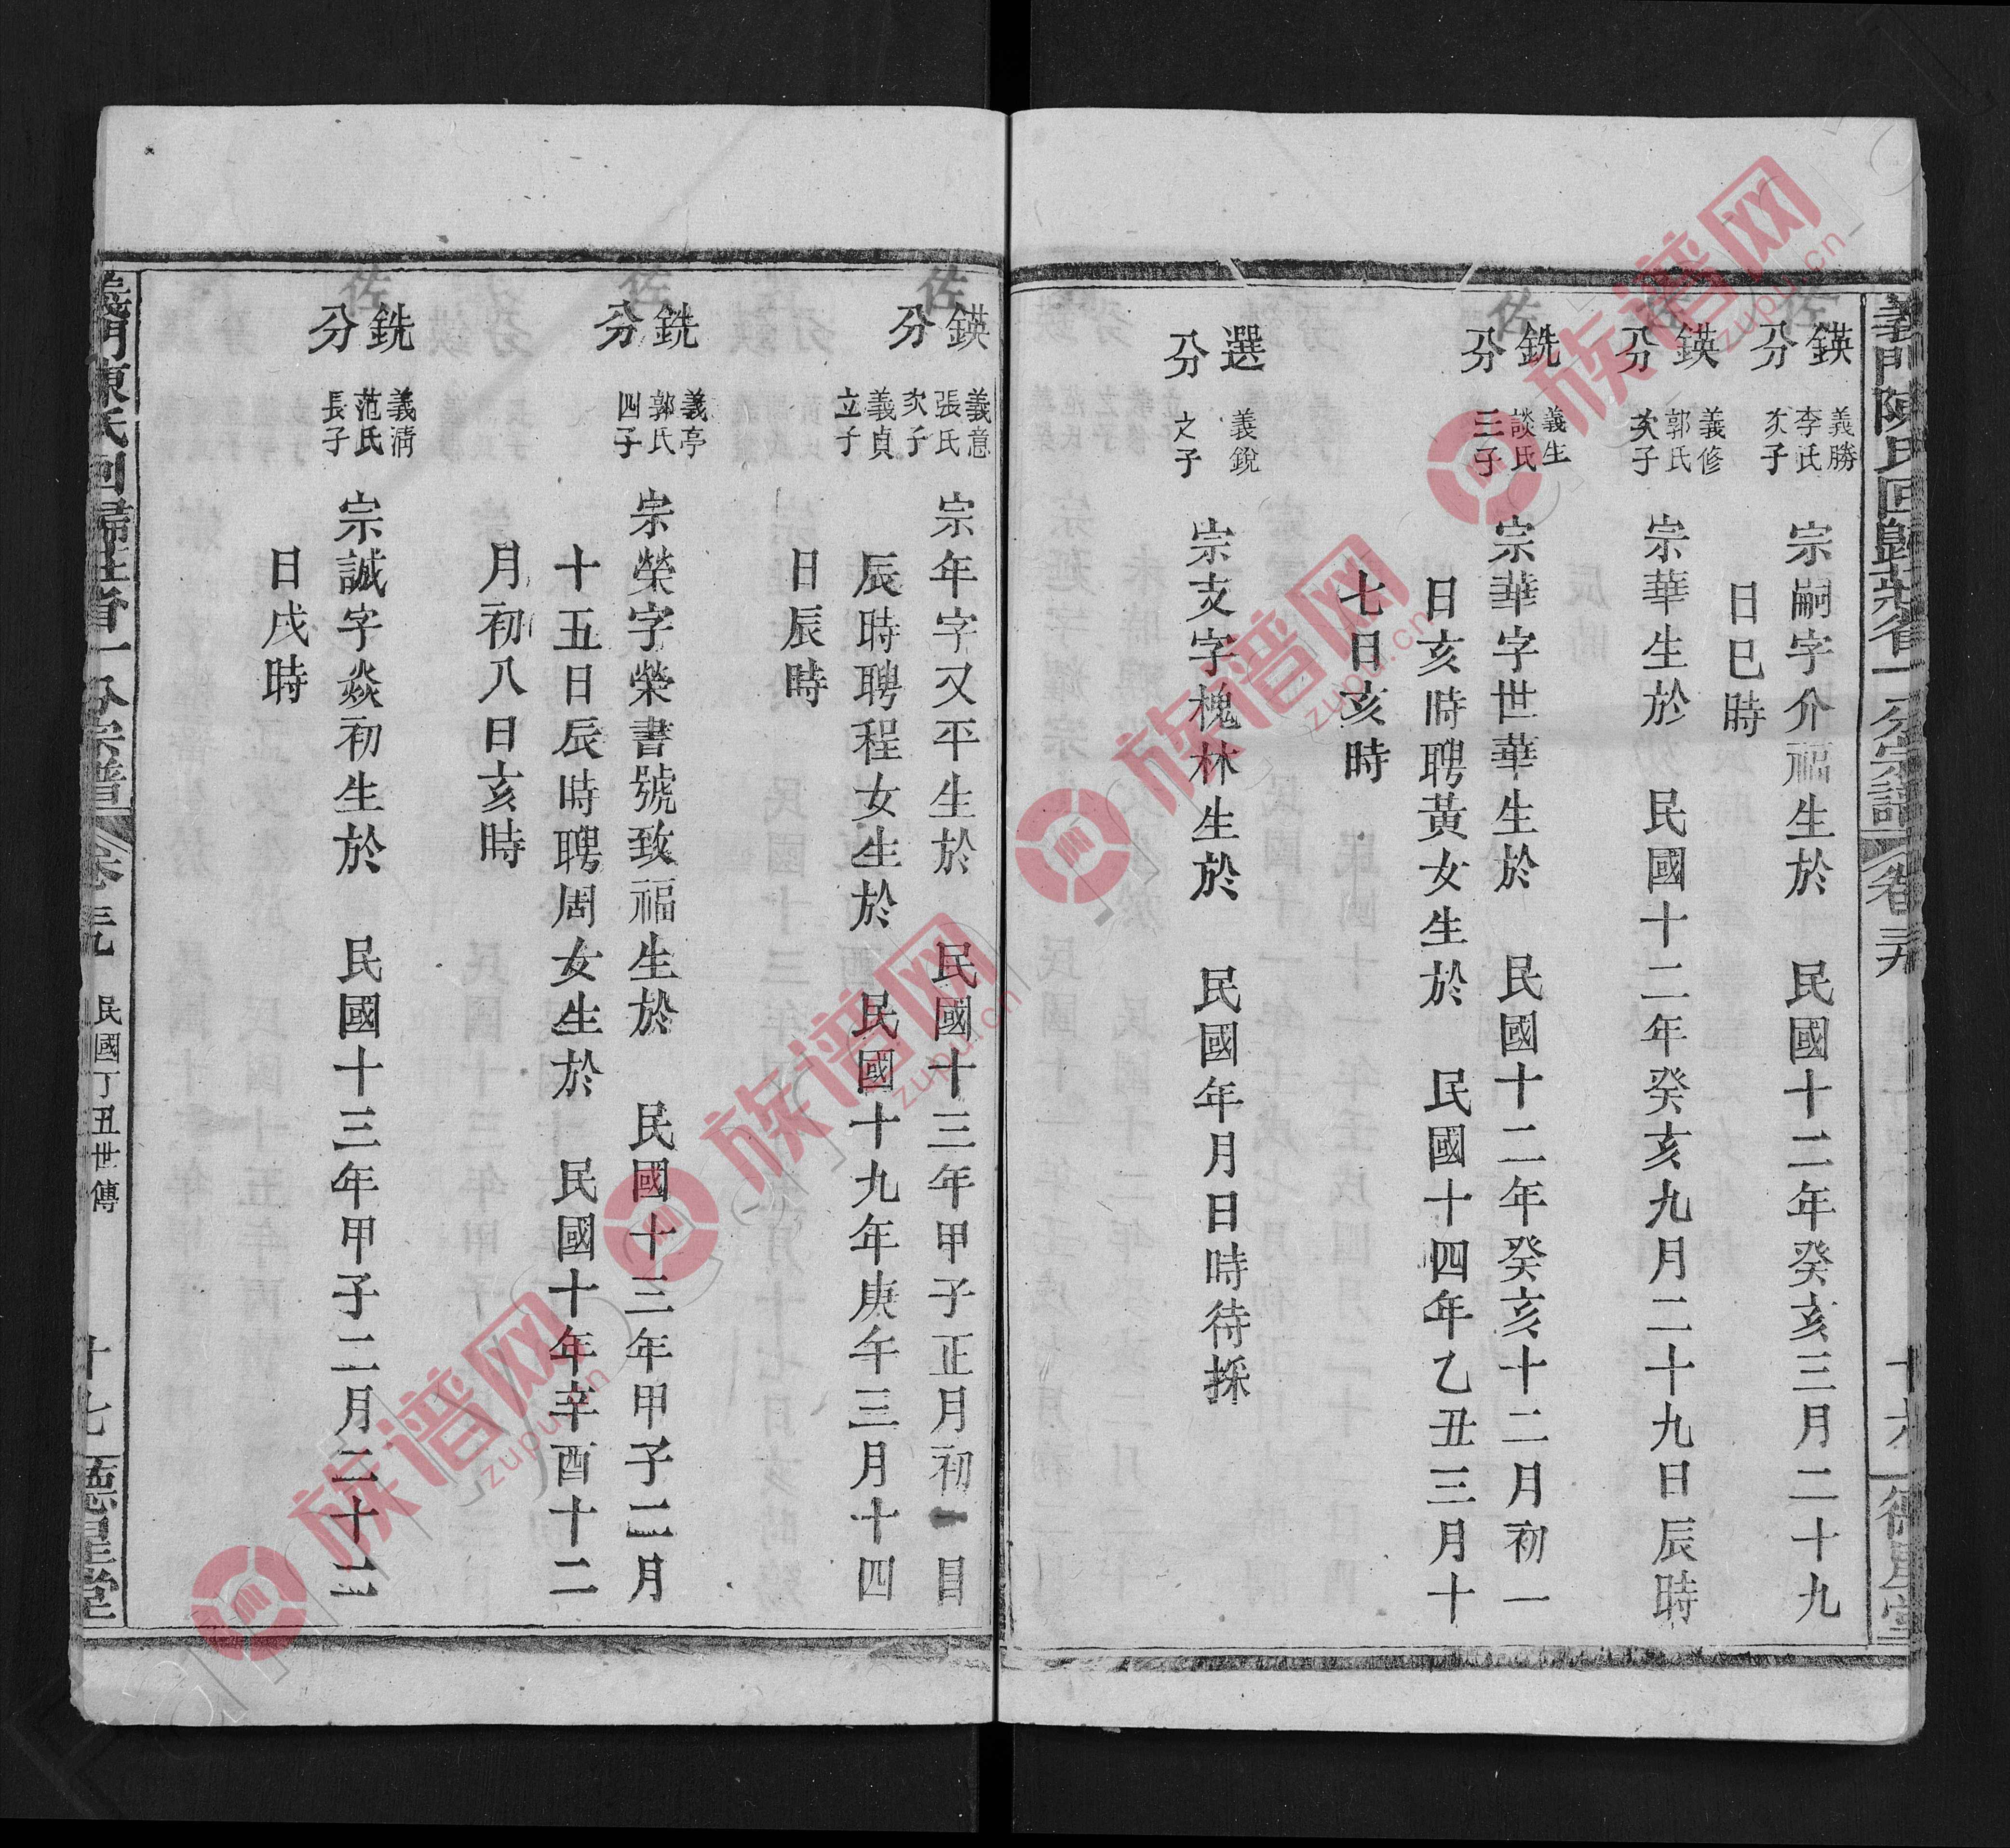 義門陳氏回歸莊省一公宗譜
卷三九
十六
德星堂
佐
鍈分
義勝
李氏
次子
宗嗣字介福生於 民國十二年癸亥三月二十九
日巳時
佐
鍈分
義修
郭氏
次子
宗華生於 民國十二年癸亥九月二十九日辰時
佐
銑分
義生
談氏
三子
宗華字世華生於 民國十二年癸亥十二月初一
日亥時聘黃女生於 民國十四年乙丑三月十
七日亥時
選分
義銳
之子
宗支字槐林生於 民國年月日時待採
佐
鍈分
義意
張氏
次子
義貞
立子
宗年字又平生於 民國十三年甲子正月初一日
辰時聘程女生於 民國十九年庚午三月十四
日辰時
佐
銑分
義亭
郭氏
四子
宗榮字榮書號致福生於 民國十三年甲子二月
十五日辰時聘周女生於 民國十年辛酉十二
月初八日亥時
佐
銑分
義清
范氏
長子
宗誠字焱初生於 民國十三年甲子二月二十二
日戌時
義門陳氏回歸莊省一公宗譜
卷三九
民國丁丑世傳
十七
德星堂
族谱网
zupu.cn
族谱网
zupu.cn
族谱网
zupu.cn
族谱网
zupu.cn